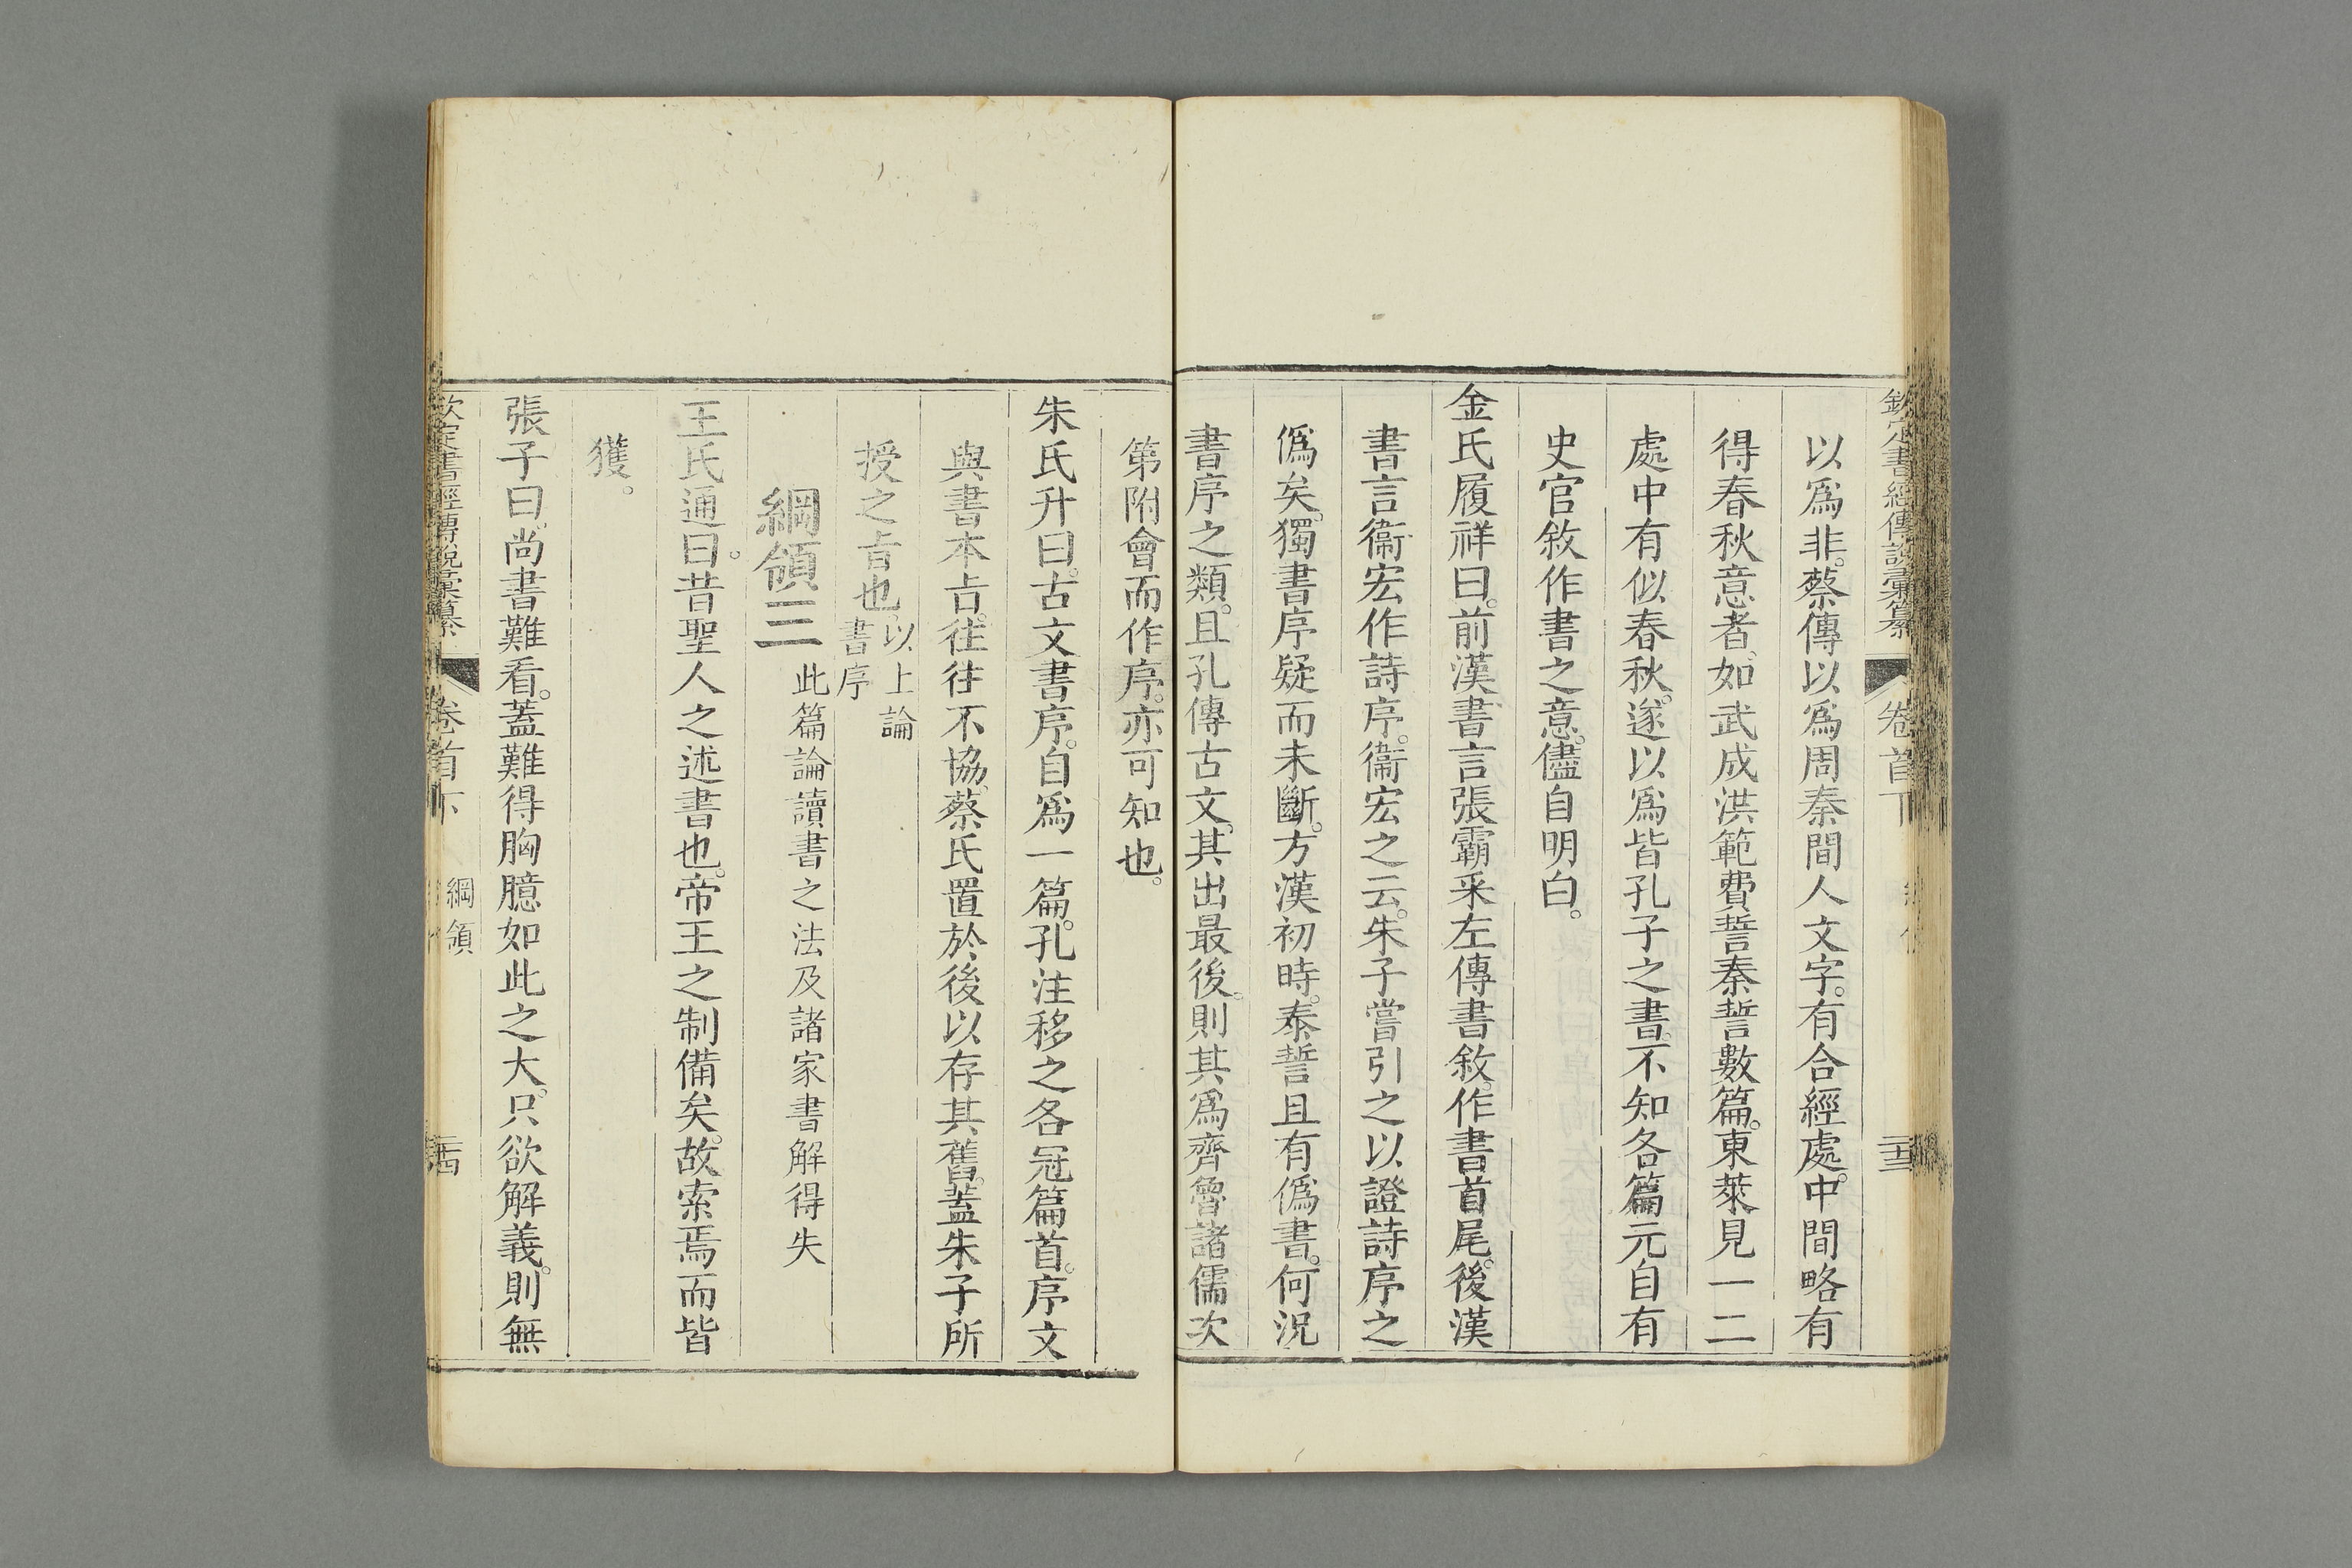 欽定書經傳說彙纂 卷首下 二十三
以爲非。蔡傳以爲周秦間人文字。有合經處。中間略有
得春秋意者、如武成洪範費誓秦誓數篇。東萊見一二
處中有似春秋。遂以爲皆孔子之書。不知各篇元自有
史官敘作書之意。儘自明白。
金氏履祥曰。前漢書言張霸采左傳書敘。作書首尾。後漢
書言衞宏作詩序。衞宏之云。朱子嘗引之以證詩序之
僞矣。獨書序疑而未斷。方漢初時。泰誓且有僞書。何況
書序之類。且孔傳古文。其出最後。則其爲齊魯諸儒次
第附會而作序。亦可知也。
朱氏升曰。古文書序。自爲一篇。孔注移之各冠篇首。序文
與書本㫖。徃徃不協。蔡氏置於後以存其舊。蓋朱子所
授之㫖也。以上論書序
綱領三 此篇論讀書之法及諸家書解得失
王氏通曰。昔聖人之述書也。帝王之制備矣。故索焉而皆
獲。
張子曰。尚書難看。蓋難得胸臆如此之大。只欲解義。則無
欽定書經傳說彙纂 卷首下 綱領 二十四